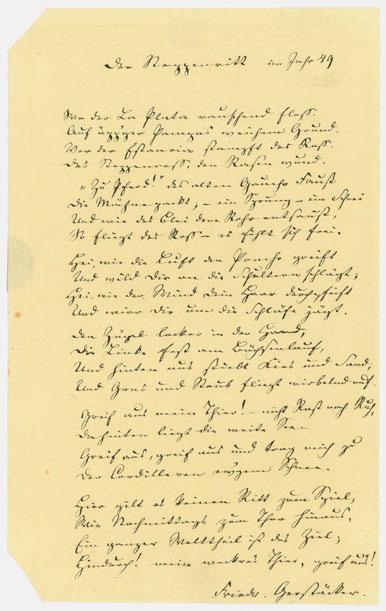 Der Steppenritt im Jahr 49
Wo der La Plata rauschend floß
Auf üpp'ger Pampas weichem Grund,
Vor der Estancia stampft das Roß,
Das Steppenroß, den Rasen wund.
"Zu Pferd!" des alten Gaucho Faust
Die Mähne packt, – ein Sprung – ein Schrei
Und wie das Blei dem Rohr entsaust,
So fliegt das Roß – es fühlt sich frei.
Hei, wie die Luft den Poncho greift
Und wild Dir um die Schultern schlägt,
Hei, wie der Wind Dein Haar durch
Und wirr Dir um die Schläfe
Den Zügel locker in der Hand,
Die Linke fest am Büchsenlauf,
Und hinten aus stiebt Kies und Sand,
Und Gras und Staub fliegt wirbelnd auf.
Greif aus mein Thier! – nicht Rast noch Ruh,
Dahinten liegt die weite See –
Greif aus, greif aus und trag mich zu
Der Cordilleren ew'gem Schnee.
Hier gilt es keinen Ritt zum Spiel,
Wie Nachmittags zum Thor hinaus,
Ein ganzer Welttheil ist das Ziel,
Hindurch! mein wackres Thier, greif aus!
Friedr. Gerstäcker.